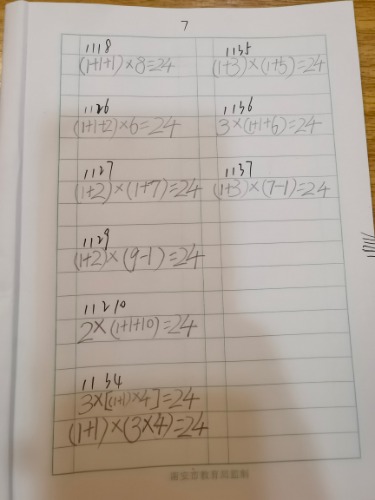 7
1118
(1+1+1)×8=24
1126
(1+1+2)×6=24
1127
(1+2)×(1+7)=24
1129
(1+2)×(9-1)=24
11210
2×(1+1+10)=24
1134
3×[(1+1)×4]=24
(1+1)×(3×4)=24
1135
(1+3)×(1+5)=24
1136
3×(1+1+6)=24
1137
(1+3)×(7-1)=24